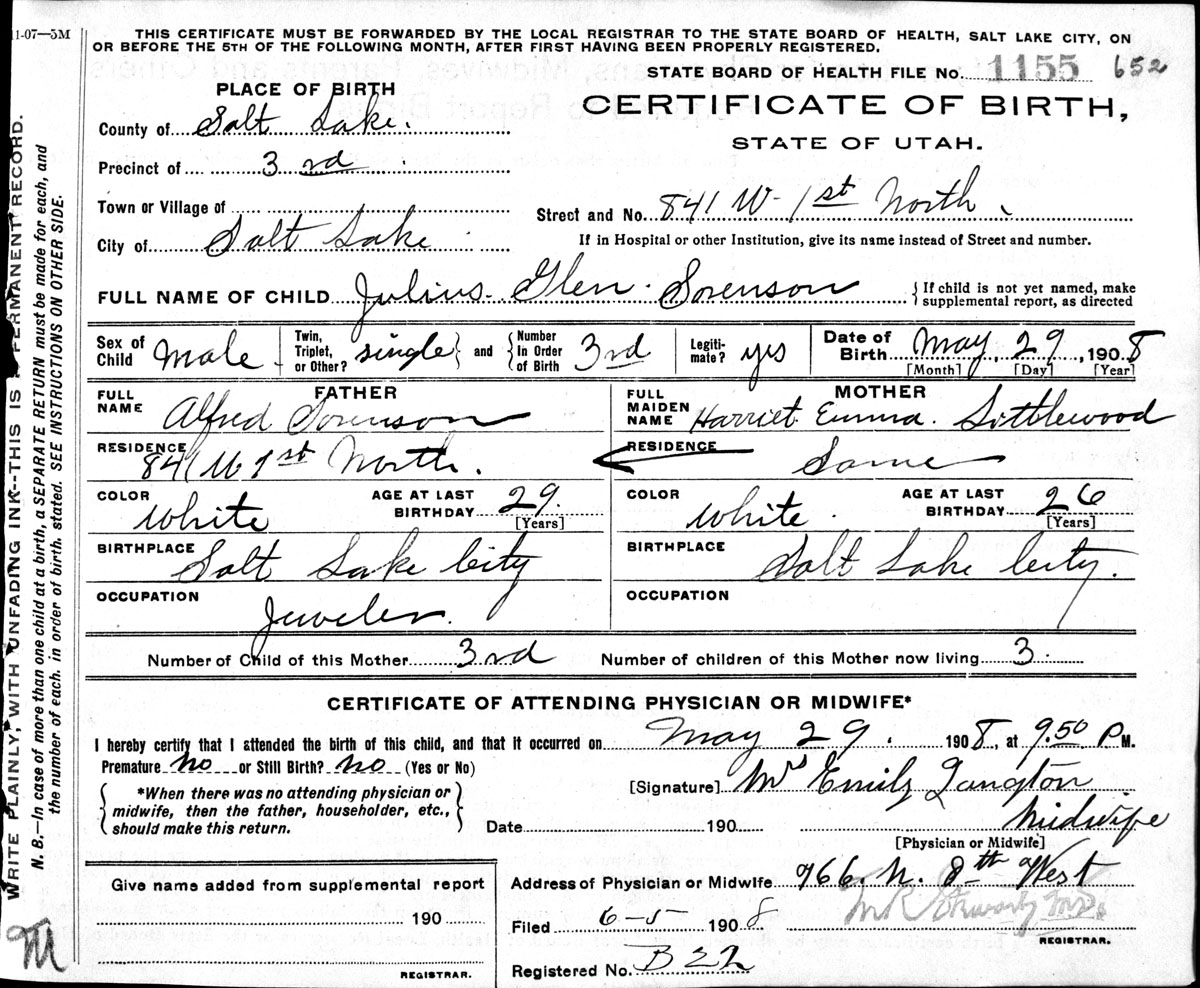 11-07—5M
THIS CERTIFICATE MUST BE FORWARDED BY THE LOCAL REGISTRAR TO THE STATE BOARD OF HEALTH, SALT LAKE CITY, ON
OR BEFORE THE 5TH OF THE FOLLOWING MONTH, AFTER FIRST HAVING BEEN PROPERLY REGISTERED.
STATE BOARD OF HEALTH FILE No. 1155 652
PLACE OF BIRTH
CERTIFICATE OF BIRTH,
STATE OF UTAH.
County of Salt Lake.
Precinct of 3rd
Town or Village of
Street and No. 841 W 1st North
City of Salt Lake
If in Hospital or other Institution, give its name instead of Street and number.
FULL NAME OF CHILD Julius Glen Sorenson { If child is not yet named, make
supplemental report, as directed
Sex of Child Male
Twin, Triplet, or Other? single } and { Number In Order of Birth 3rd
Legiti-mate? yes
Date of Birth May, 29, 1908
[Month] [Day] [Year]
FATHER
FULL NAME Alfred Sorenson
MOTHER
FULL MAIDEN NAME Harriet Emma Littlewood
RESIDENCE 841 W 1st North.
RESIDENCE Same
COLOR White
AGE AT LAST BIRTHDAY 29.
[Years]
COLOR White.
AGE AT LAST BIRTHDAY 26
[Years]
BIRTHPLACE Salt Lake City
BIRTHPLACE Salt Lake City.
OCCUPATION Jeweler.
OCCUPATION
Number of Child of this Mother 3rd Number of children of this Mother now living 3.
CERTIFICATE OF ATTENDING PHYSICIAN OR MIDWIFE*
I hereby certify that I attended the birth of this child, and that it occurred on May 29. 1908, at 9.50 P M.
Premature no or Still Birth? no (Yes or No)
{ *When there was no attending physician or
midwife, then the father, householder, etc.,
should make this return. }
[Signature] Mrs Emily Langton
Date 190 Midwife
[Physician or Midwife]
Give name added from supplemental report
190
REGISTRAR.
Address of Physician or Midwife 966 N. 8th West
Filed 6-5 1908
M.D.
REGISTRAR.
Registered No. B22
WRITE PLAINLY, WITH UNFADING INK--THIS IS A PERMANENT RECORD.
N. B.—In case of more than one child at a birth, a SEPARATE RETURN must be made for each, and
the number of each, in order of birth, stated. SEE INSTRUCTIONS ON OTHER SIDE.
M